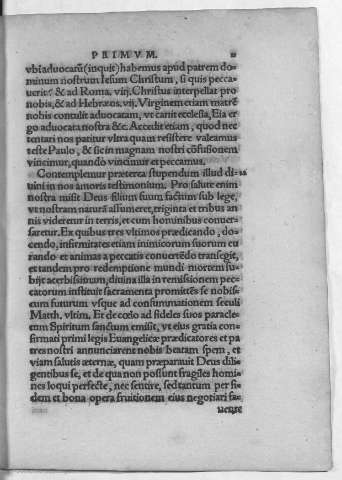 PRIMVM.
vbi aduocatũ (inquit) habemus apud patrem do-
minum nostrum Iesum Christum, si quis pecca-
uerit: & ad Roma. viij. Christus interpellat pro
nobis, & ad Hebræos.vij. Virginem etiam matrẽ
nobis contulit aduocatam, vt canit ecclesia, Eia er
go aduocata nostra &c. Accedit etiam, quod nec
tentari nos patitur vltra quam resistere valeamus
teste Paulo, & sic in magnam nostri cõfusionem
vincimur, quando vincimur et peccamus.
Contemplemur præterea stupendum illud di- 12
uini in nos amoris testimonium. Pro salute enim
nostra misit Deus filium suum factum sub lege,
vt nostram naturã assumeret, triginta et tribus an
nis videretur in terris, et cum hominibus conuer-
saretur. Ex quibus tres vltimos prædicando, do-
cendo, infirmitates etiam inimicorum suorum cu
rando et animas a peccatis conuertẽdo transegit,
et tandem pro redemptione mundi mortem su-
bijt acerbissimam, diuina illa in remissionem pec-
catorum instituit sacramenta promittẽs se nobis-
cum futurum vsque ad consummationem seculi
Matth. vltim. Et de cœlo ad fideles suos paracle-
tum Spiritum sanctum emisit, vt eius gratia con-
firmati primi legis Euangelicæ prædicatores et pa
tres nostri annunciarent nobis beatam spem, et
viam salutis æternæ, quam præparauit Deus dili-
gentibus se, et de qua non possunt fragiles homi-
nes loqui perfecte, nec sentire, sed tantum per fi-
dem et bona opera fruitionem eius negotiari sa-